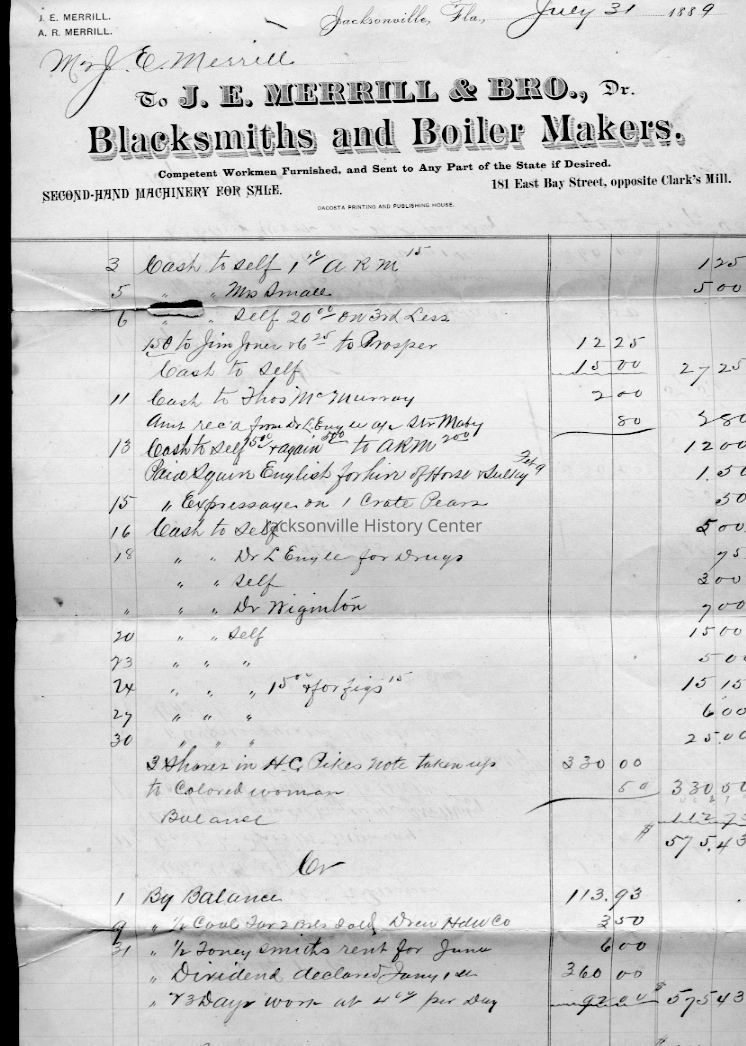 J. E. MERRILL.
A. R. MERRILL.
Jacksonville, Fla., July 31 1889
Mr J. E. Merrill
To J. E. MERRILL & BRO., Dr.
Blacksmiths and Boiler Makers.
Competent Workmen Furnished, and Sent to Any Part of the State if Desired.
SECOND-HAND MACHINERY FOR SALE. 181 East Bay Street, opposite Clark's Mill.
DACOSTA PRINTING AND PUBLISHING HOUSE.
3 Cash to self 1 10 A R M 15 1 25
5 " " Mrs Small 5 00
6 " " Self 20 00 on 3rd Less
1 50 to Jim Jones & 6 25 to Prosper 12 25
Cash to Self 15 00 27 25
11 Cash to Thos McMurray 2 00
Amt rec'd from Dr L'Engle a/c Str Maby 80 2 80
13 Cash to self 5 00 & again 5 00 to ARM 2 00 12 00
Paid Squire English for hire of Horse & Sulky 1.50
15 " Expressage on 1 Crate Pears 50
16 Cash to Self 5 00
Jacksonville History Center
18 " " Dr L'Engle for Drugs 75
" " Self 3 00
" " " Dr Wiginton 7 00
20 " " Self 15 00
23 " " " 5 00
24 " " " 15 00 & for figs 15 15 15
27 " " " 6 00
30 " " " 25.00
3 Shares in H.C. Pikes note taken up 330 00
to Colored woman 50 330 50
Balance 112 73
$ 575.43
Cr
1 By Balance 113.93
9 " 1/2 Coal Tar 2 Bbls Sold Drew Hdw Co 3 50
31 " 1/2 Toney Smiths rent for June 6 00
" Dividend declared Jany 1st 360 00
" 23 Days work at 4 00 per Day 92 00 $ 575 43